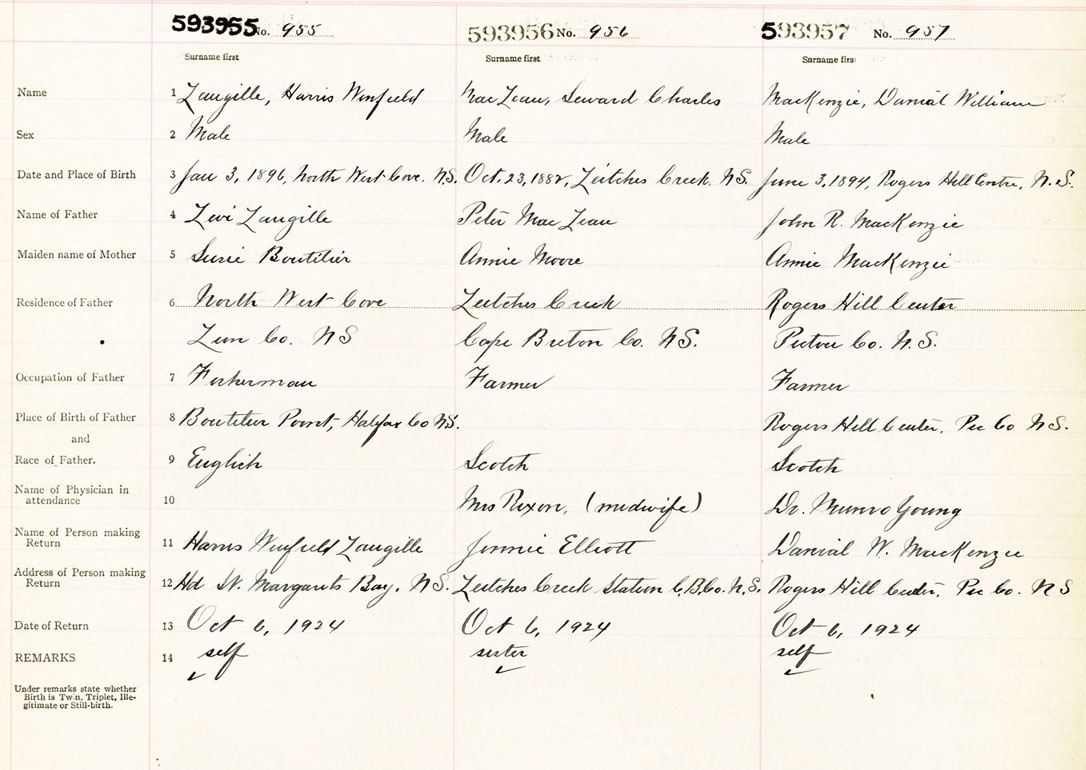 593955 No. 955 593956 No. 956 593957 No. 957
Surname first Surname first Surname first
Name 1 Langille, Harris Winfield MacLean, Seward Charles MacKenzie, Danial William
Sex 2 Male Male Male
Date and Place of Birth 3 Jan 3, 1896, North West Cove. N.S. Oct. 23, 1882, Leitches Creek. N.S. June 3, 1894, Rogers Hill Centre, N.S.
Name of Father 4 Levi Langille Peter MacLean John R. MacKenzie
Maiden name of Mother 5 Susie Boutilier Annie Moore Annie MacKenzie
Residence of Father 6 North West Cove Leitches Creek Rogers Hill Center
Lun Co. NS Cape Breton Co. N.S. Pictou Co. N.S.
Occupation of Father 7 Fisherman Farmer Farmer
Place of Birth of Father 8 Boutilier Point, Halifax Co N.S. Rogers Hill Center, Pic Co N.S.
and
Race of Father. 9 English Scotch Scotch
Name of Physician in
attendance 10 Mrs (midwife) Dr. Munro Young
Name of Person making
Return 11 Harris Winfield Langille Jennie Elliott Danial W. MacKenzie
Address of Person making
Return 12 Hd St. Margarets Bay, N.S. Leitches Creek Station C.B.Co. N.S. Rogers Hill Center, Pic Co. N S
Date of Return 13 Oct 6, 1924 Oct 6, 1924 Oct 6, 1924
REMARKS 14 self sister self
Under remarks state whether
Birth is Twin, Triplet, Ille-
gitimate or Still-birth.